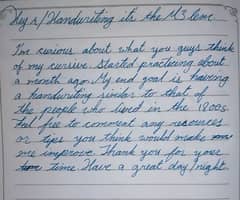 Hey r/Handwriting its the M3 lemc
I'm curious about what you guys think
of my cursive. Started practicing about
a month ago. My end goal is having
a handwriting similar to that of
the people who lived in the 1800s.
Feel free to comment any resources
or tips you think would make
me improve. Thank you for your
time Have a great day/night.